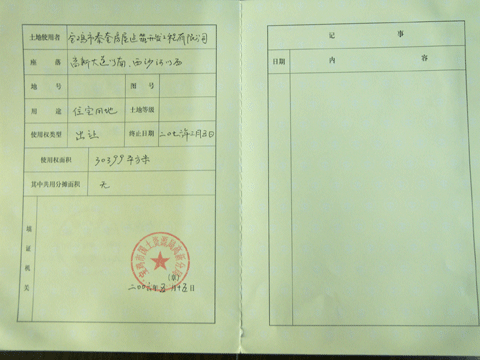 土地使用者 宝鸡市秦金房屋建筑开发工程有限公司
座落 高新大道以南、西沙河以西
地号 图号
用途 住宅用地 土地等级
使用权类型 出让 终止日期
使用权面积 30399平方米
其中共用分摊面积 无
填证机关
(章)
记事
日期 内容